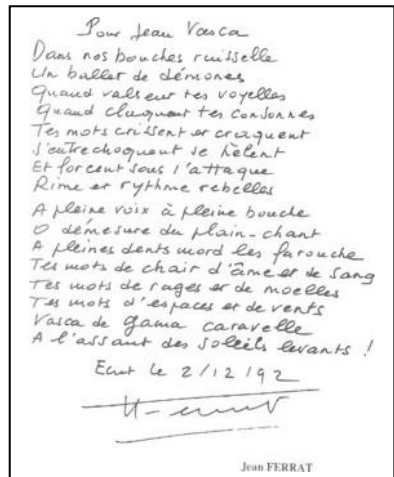 Pour Jean Vasca
Dans nos bouches ruisselle
Un ballet de démones
Quand valsent tes voyelles
Quand claquent tes consonnes
Tes mots crissent et craquent
S'entrechoquent se hèlent
Et forcent sous l'attaque
Rime et rythme rebelles
A pleine voix à pleine bouche
O démesure du plain-chant
A pleines dents mord les farouche
Tes mots de chair d'âme et de sang
Tes mots de rages et de moelles
Tes mots d'espaces et de vents
Vasca de Gama caravelle
A l'assaut des soleils levants !
Ecrit le 2/12/92
Jean FERRAT